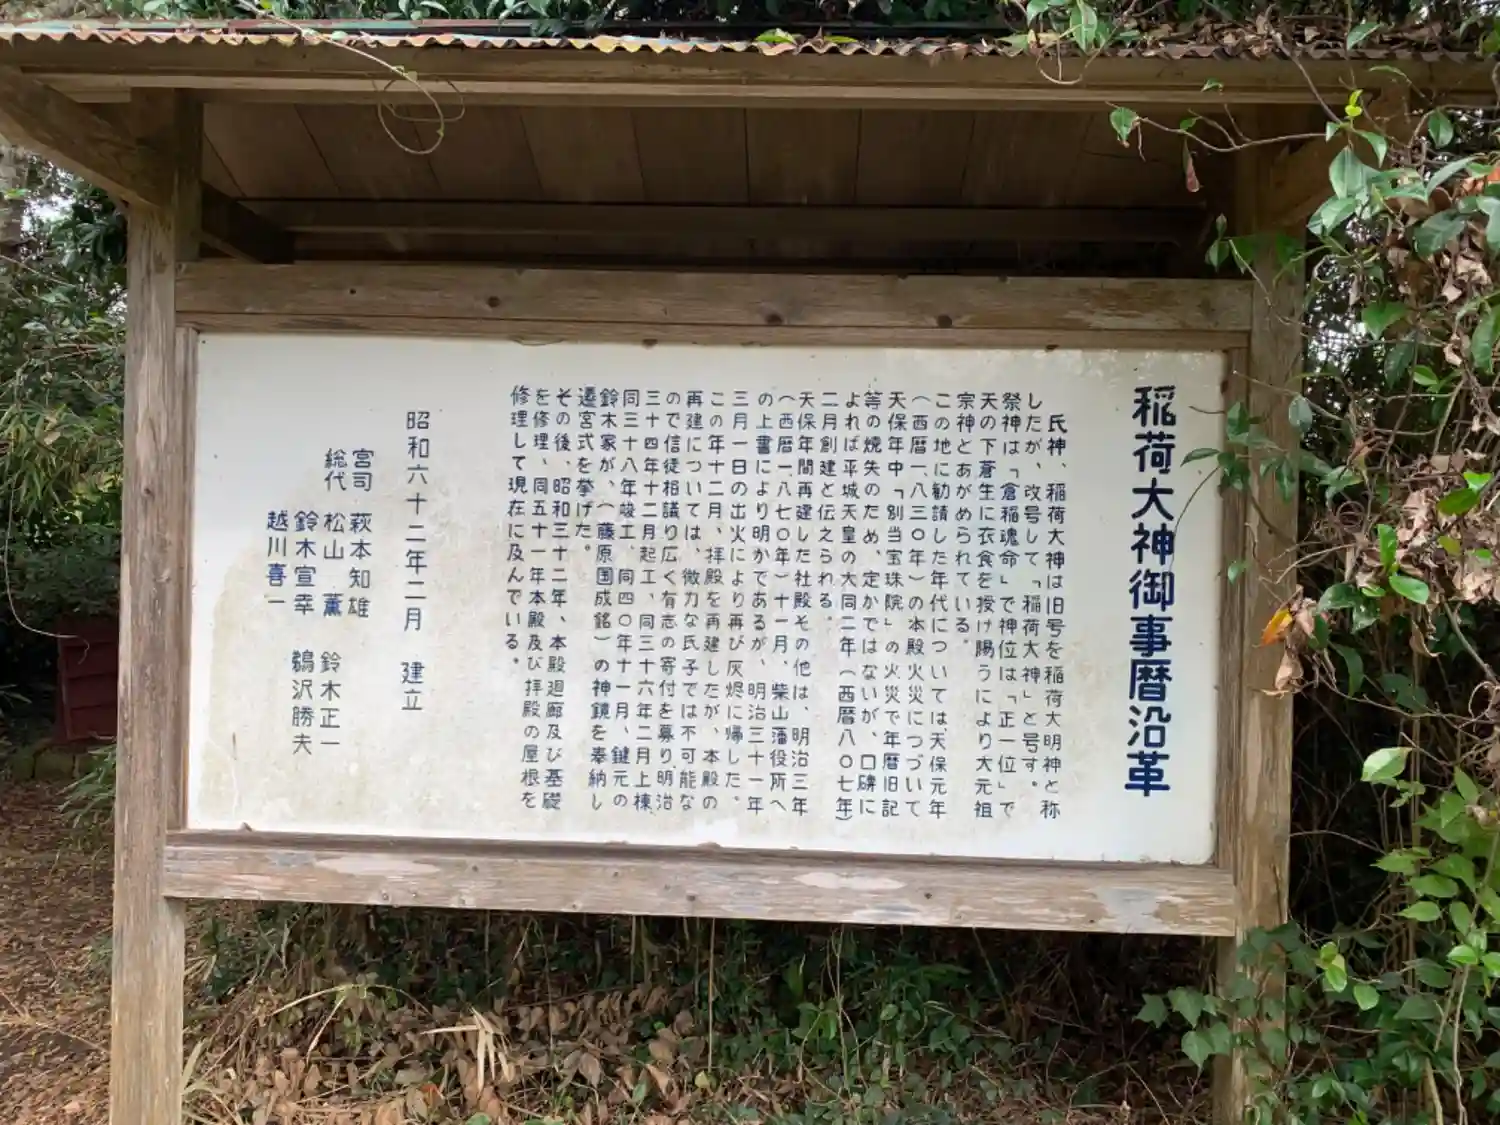 稲荷大神御事暦沿革
氏神、稲荷大神は旧号を稲荷大明神と称
したが、改号して「稲荷大神」と号す。
祭神は「倉稲魂命」で神位は「正一位」で
天の下蒼生に衣食を授け賜うにより大元祖
宗神とあがめられている。
この地に勧請した年代については、天保元年
(西暦一、八三〇年)の本殿火災につづいて
天保年中「別当宝珠院」の火災で年暦旧記
等の焼失のため、定かではないが、口碑に
よれば平城天皇の大同二年(西暦八〇七年)
二月創建と伝えられる。
天保年間再建した社殿その他は、明治三年
(西暦一、八七〇年)十一月、柴山藩役所へ
の上書により明かであるが、明治三十一年
三月一日の出火により再び灰燼に帰した。
この年十二月、拝殿を再建したが、本殿の
再建については、微力な氏子では不可能な
ので信徒相議り広く有志の寄付を募り明治
三十四年十二月起工、同三十六年二月上棟、
同三十八年竣工、同四〇年十一月、鍵元の
鈴木家が、(藤原国成銘)の神鏡を奉納し
遷宮式を挙げた。
その後、昭和三十二年、本殿廻廊及び基礎
を修理、同五十一年本殿及び拝殿の屋根を
修理して現在に及んでいる。
昭和六十二年二月 建立
宮司 萩本知雄
総代 松山 薫 鈴木正一
鈴木宣幸 鵜沢勝夫
越川喜一